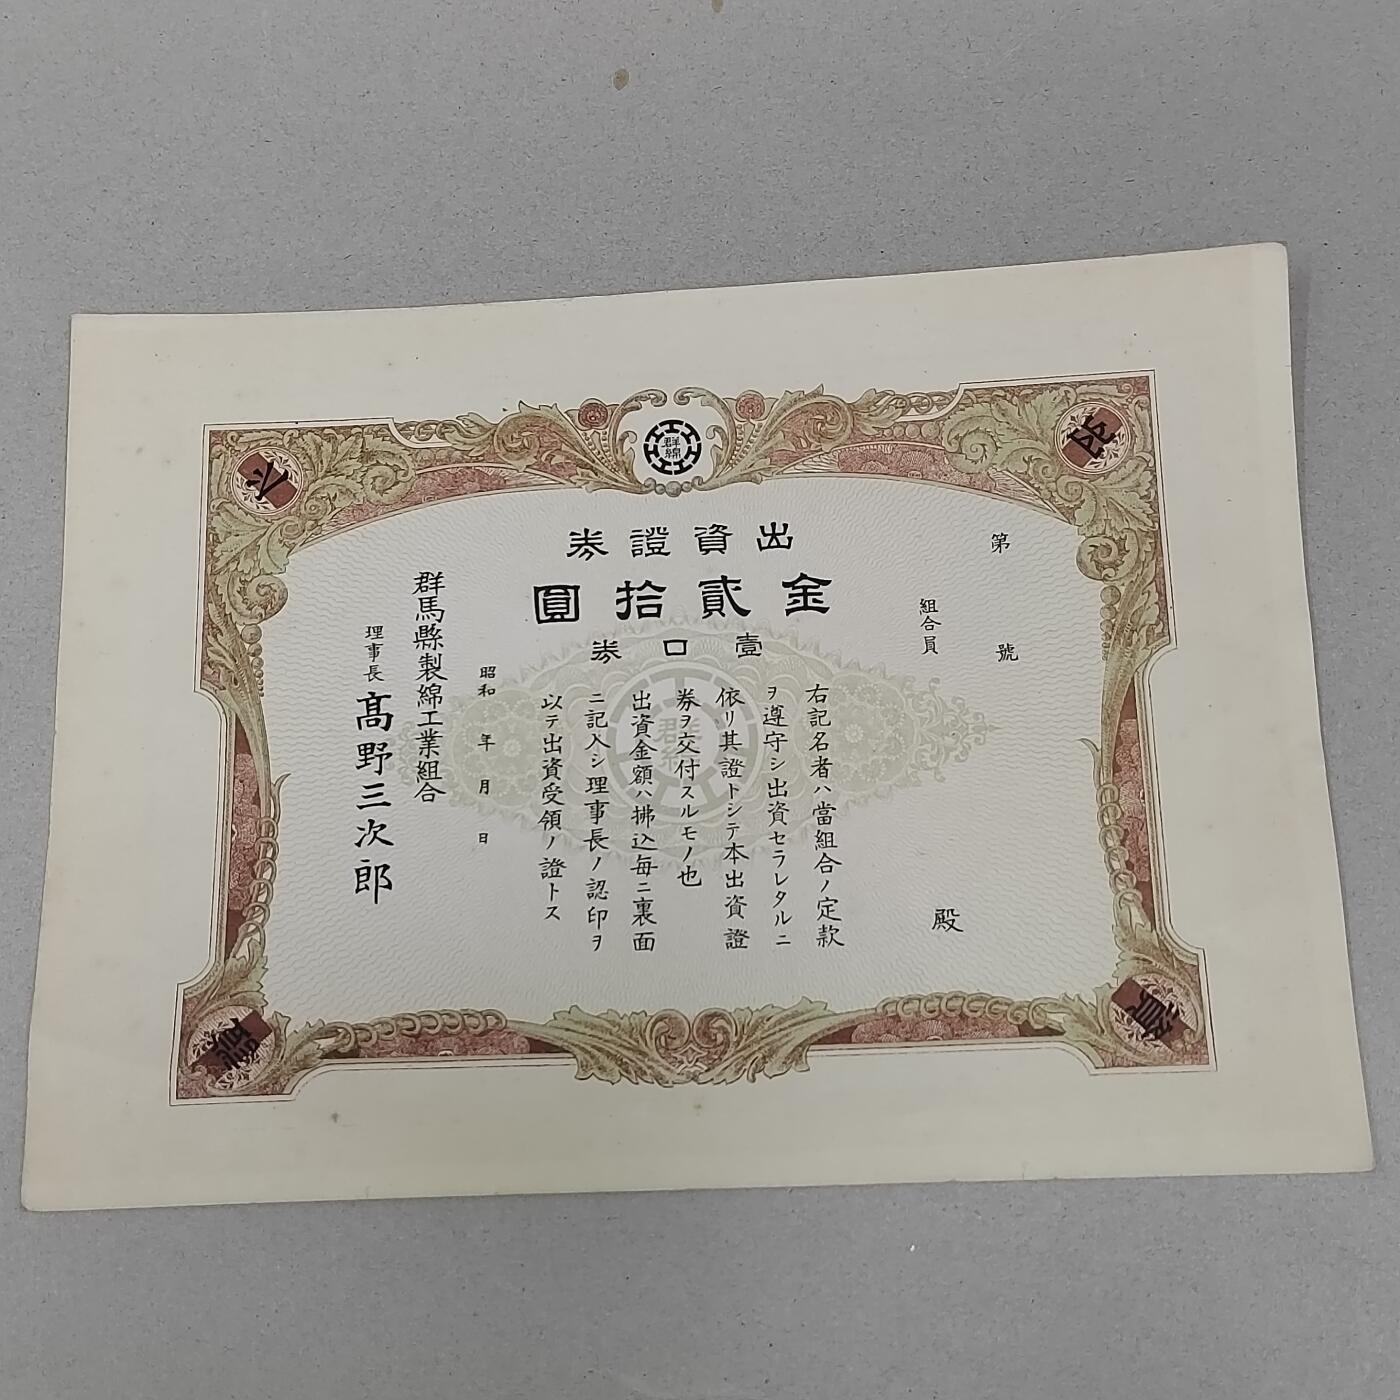 群綿
出資證券
金貳拾圓
壹口券
第 號
組合員 殿
右記名者ハ當組合ノ定款
ヲ遵守シ出資セラレタルニ
依リ其證トシテ本出資證
券ヲ交付スルモノ也
出資金額ハ拂込每ニ裏面
ニ記入シ理事長ノ認印ヲ
以テ出資受領ノ證トス
昭和 年 月 日
群馬縣製綿工業組合
理事長 髙野三次郎
群綿